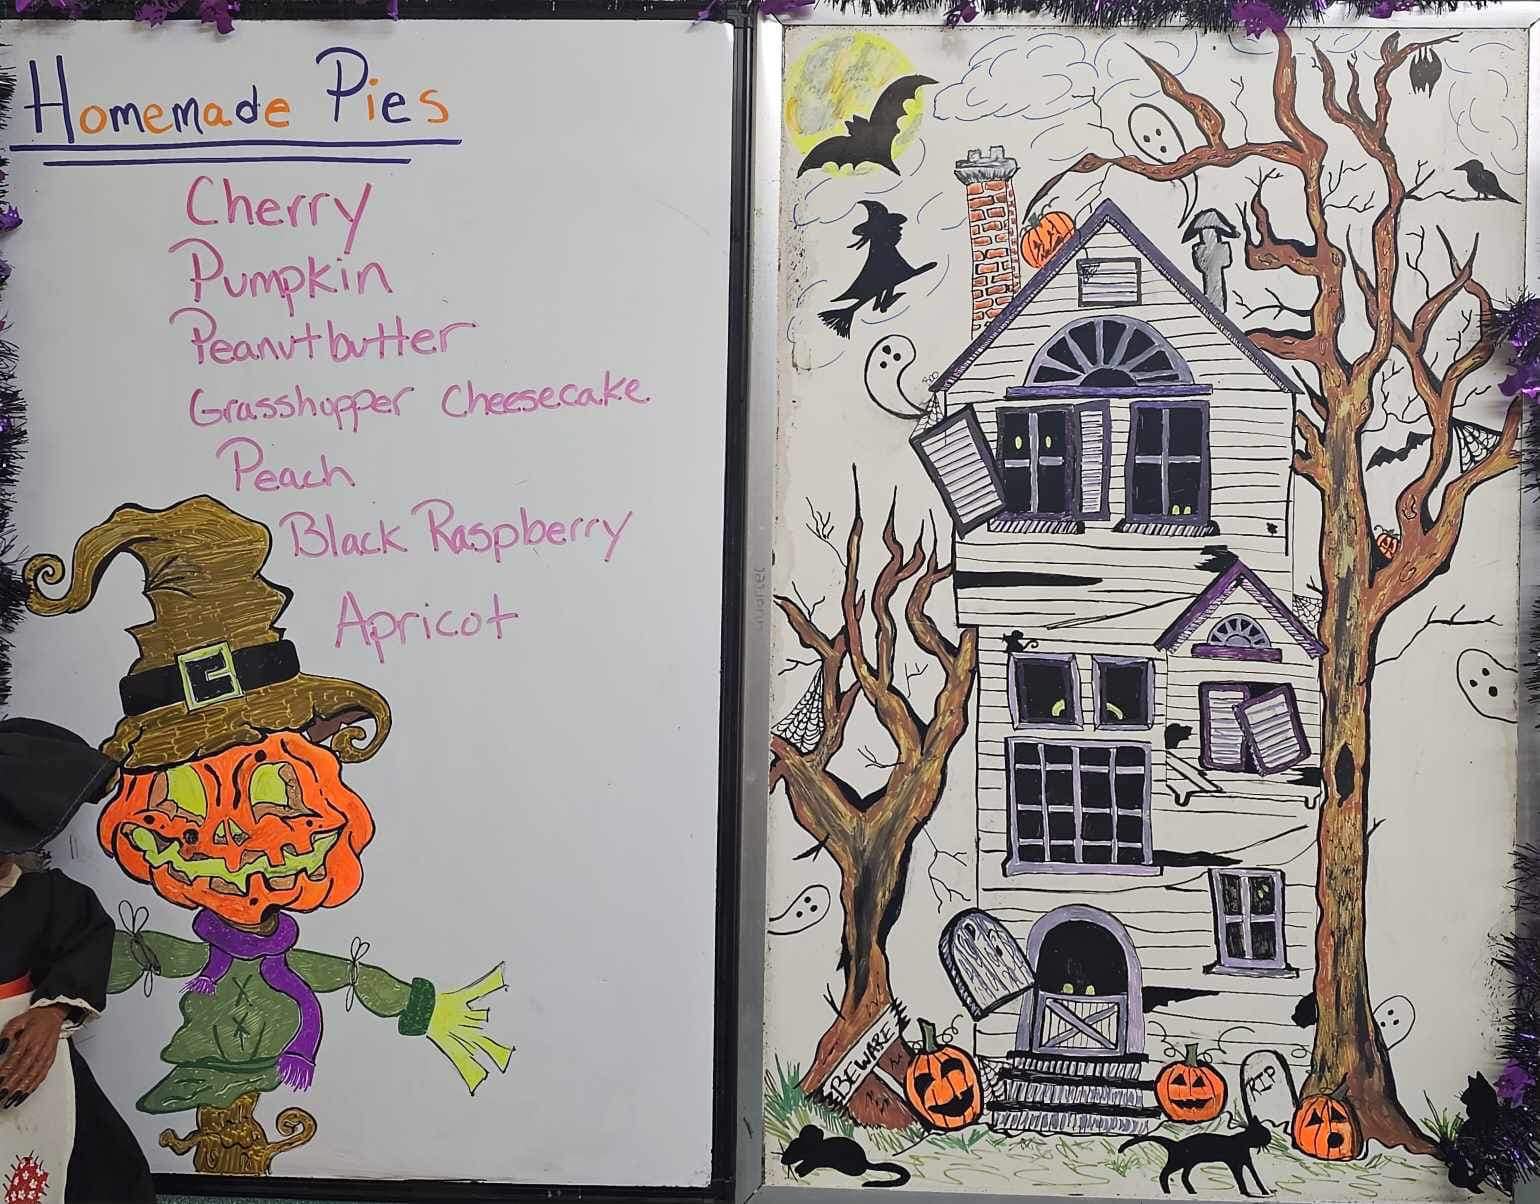 Homemade Pies
Cherry
Pumpkin
Peanutbutter
Grasshopper Cheesecake
Peach
Black Raspberry
Apricot
Boo
BEWARE
RIP